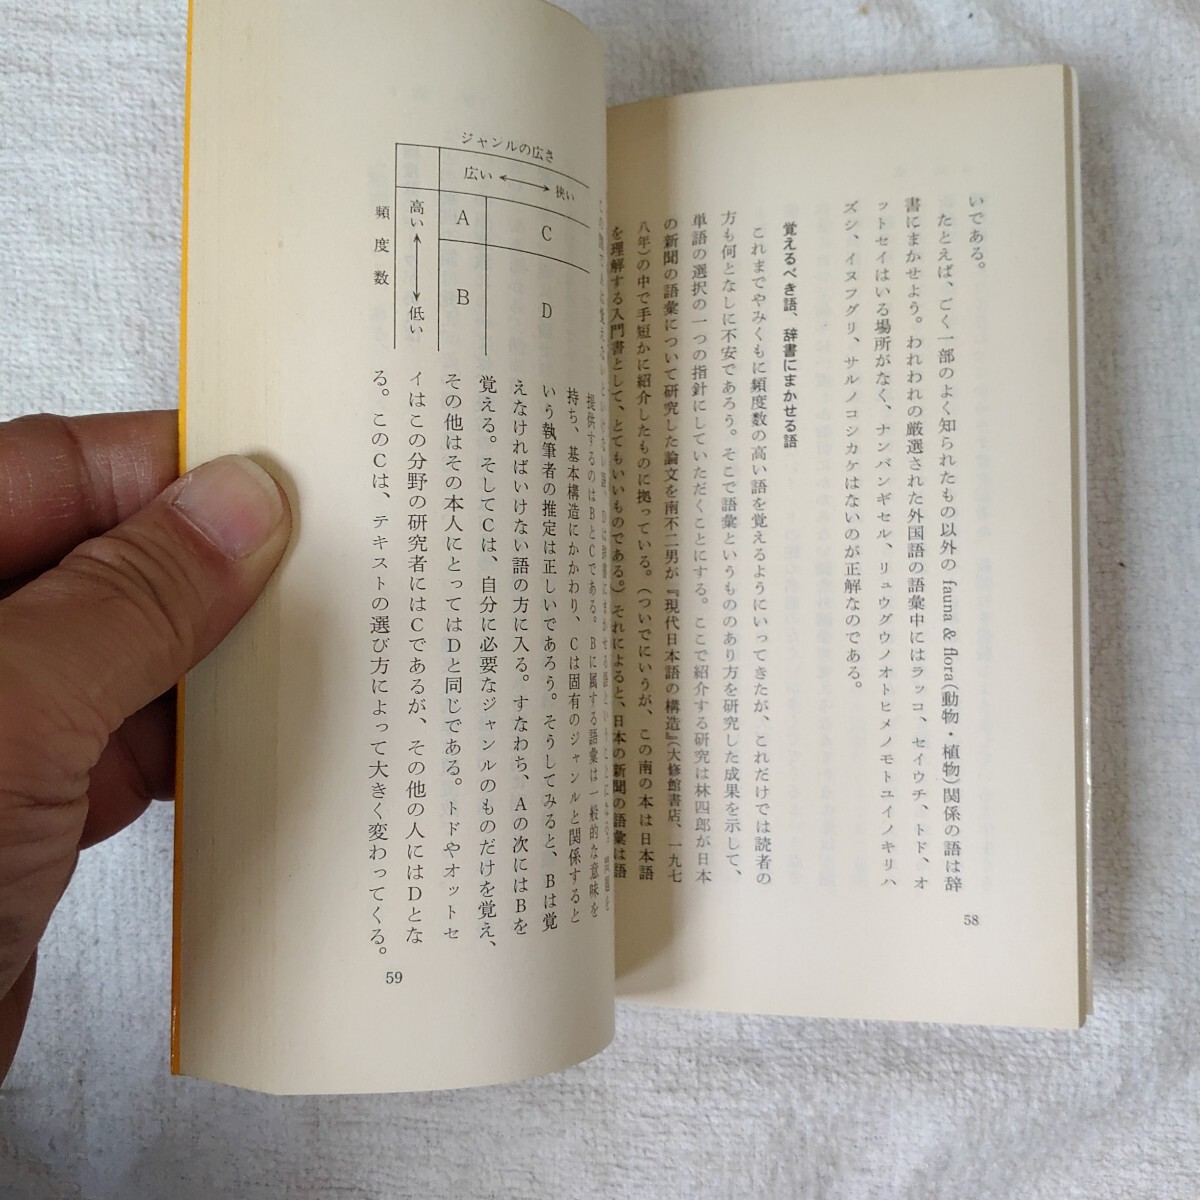 いである。
たとえば、ごく一部のよく知られたもの以外の fauna & flora(動物・植物)関係の語は辞
書にまかせよう。われわれの厳選された外国語の語彙中にはラッコ、セイウチ、トド、オ
ットセイはいる場所がなく、ナンバンギセル、リュウグウノオトヒメノモトユイノキリハ
ズシ、イヌフグリ、サルノコシカケはないのが正解なのである。
覚えるべき語、辞書にまかせる語
これまでやみくもに頻度数の高い語を覚えるようにいってきたが、これだけでは読者の
方も何となしに不安であろう。そこで語彙というもののあり方を研究した成果を示して、
単語の選択の一つの指針にしていただくことにする。ここで紹介する研究は林四郎が日本
の新聞の語彙について研究した論文を南不二男が『現代日本語の構造』(大修館書店、一九七
八年)の中で手短かに紹介したものに拠っている。(ついでにいうが、この南の本は日本語
を理解する入門書として、とてもいいものである。)それによると、日本の新聞の語彙は語
58
ジャンルの広さ
広い ⟷ 狭い
頻度数
高い ⟷ 低い
A
C
B
D
提供するのはBとCである。Bに属する語彙は一般的な意味を
持ち、基本構造にかかわり、Cは固有のジャンルと関係すると
いう執筆者の推定は正しいであろう。そうしてみると、Bは覚
えなければいけない語の方に入る。すなわち、Aの次にはBを
覚える。そしてCは、自分に必要なジャンルのものだけを覚え、
その他はその本人にとってはDと同じである。トドやオットセ
イはこの分野の研究者にはCであるが、その他の人にはDとな
る。このCは、テキストの選び方によって大きく変わってくる。
59